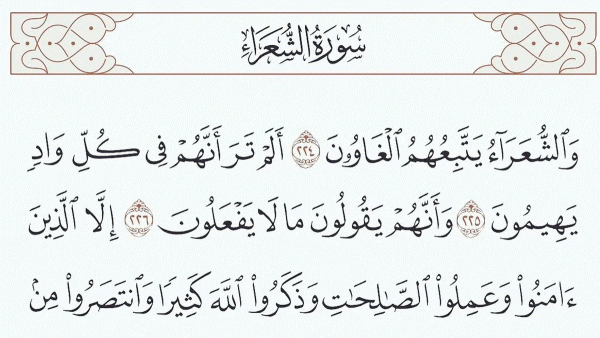 سُورَةُ الشُّعَرَاءِ
وَٱلشُّعَرَآءُ يَتَّبِعُهُمُ ٱلْغَاوُۥنَ ٢٢٤ أَلَمْ تَرَ أَنَّهُمْ فِى كُلِّ وَادٍ
يَهِيمُونَ ٢٢٥ وَأَنَّهُمْ يَقُولُونَ مَا لَا يَفْعَلُونَ ٢٢٦ إِلَّا ٱلَّذِينَ
ءَامَنُوا۟ وَعَمِلُوا۟ ٱلصَّـٰلِحَـٰتِ وَذَكَرُوا۟ ٱللَّهَ كَثِيرًا وَٱنتَصَرُوا۟ مِنۢ